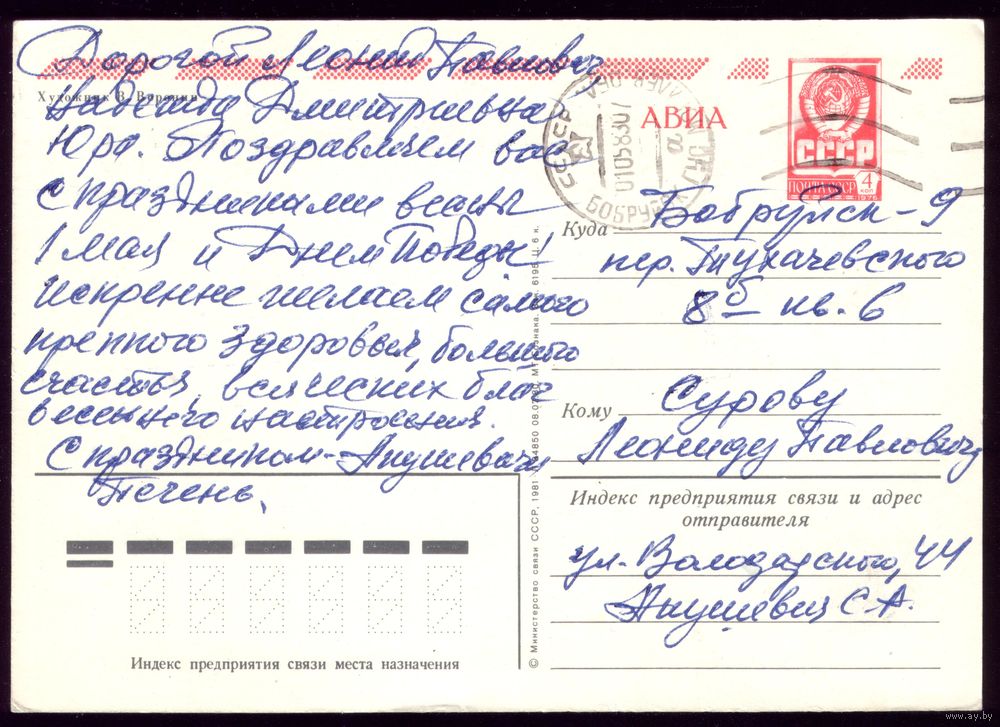 Дорогой Леонид Павлович
Художник В. Воронин
Надежда Дмитриевна
Юра. Поздравляем вас
с праздниками весны
1 мая и Днем Победы!
искренне желаем самого
крепкого здоровья, большого
счастья, всяческих благ
весеннего настроения.
С праздником - Янушевичи
Печень.
АВИА
СССР
ПОЧТА СССР
4 коп
1976
СССР
БОБРУЙСК
Куда Бобруйск-9
пер. Тухачевского
8 кв. 6
Кому Сурову
Леониду Павлович
Индекс предприятия связи и адрес
отправителя
ул. Володарского, 44
Янушевич С.А.
Индекс предприятия связи места назначения
© Министерство связи СССР, 1981
www.ay.by